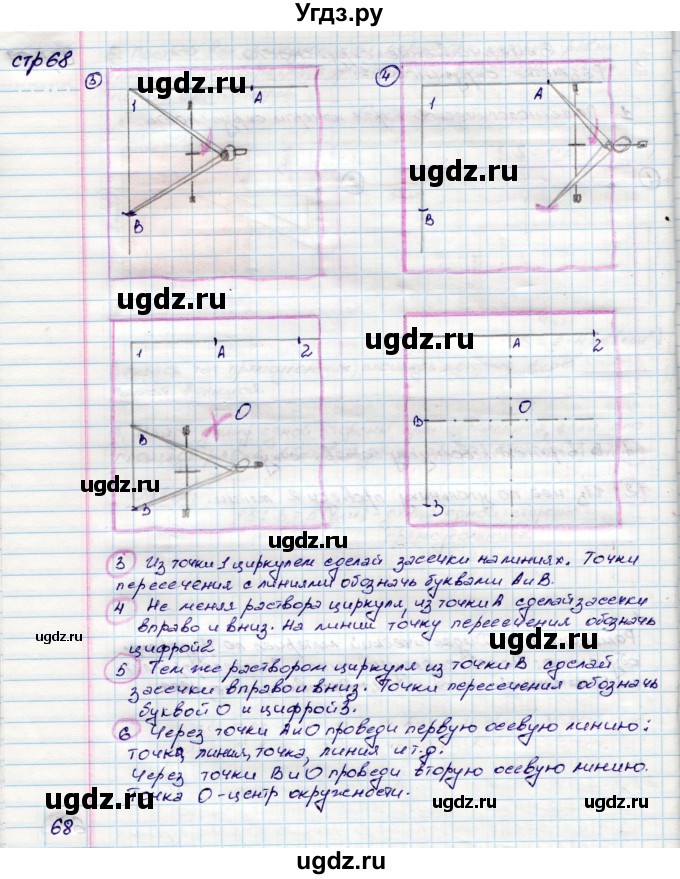 Угдз.ру
стр 68
3
4
1
A
B
1
A
B
1
A
2
O
B
3
A
2
O
B
3
3 Из точки 1 циркулем сделай засечки на линиях. Точки
пересечения с линиями обозначь буквами А и В.
4 Не меняя раствора циркуля, из точки А сделай засечки
вправо и вниз. На линии точку пересечения обозначь
цифрой 2
5 Тем же раствором циркуля из точки В сделай
засечки вправо и вниз. Точки пересечения обозначь
буквой О и цифрой 3.
6 Через точки А и О проведи первую осевую линию:
точка, линия, точка, линия и т.д.
Через точки В и О проведи вторую осевую линию.
Точка О - центр окружности.
68
ugdz.ru
ugdz.ru
ugdz.ru
ugdz.ru
ugdz.ru
ugdz.ru
ugdz.ru
ugdz.ru
ugdz.ru
ugdz.ru
ugdz.ru
ugdz.ru
ugdz.ru